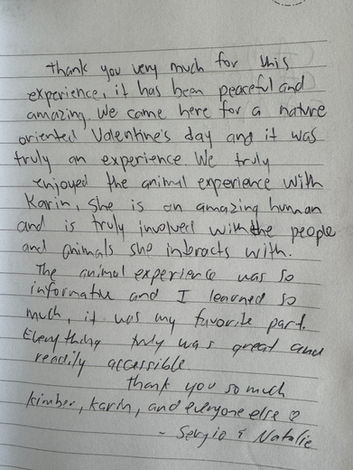 Thank you very much for this
experience, it has been peaceful and
amazing. We came here for a nature
oriented Valentine's day and it was
truly an experience. We truly
enjoyed the animal experience with
Karin, she is an amazing human
and is truly involved with the people
and animals she interacts with.
The animal experience was so
informative and I learned so
much, it was my favorite part.
Everything truly was great and
readily accessible.
Thank you so much
Kimber, Karin, and everyone else ♡
- Sergio & Natalie